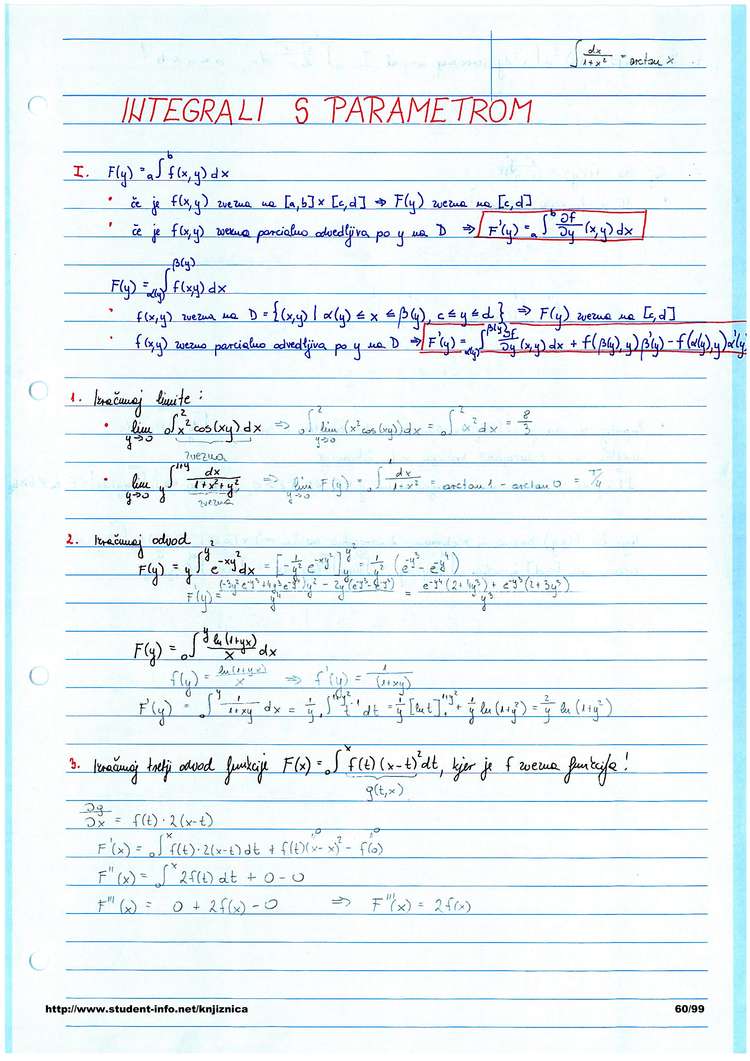 ∫ dx/(1+x²) = arctan x
INTEGRALI S PARAMETROM
I. F(y) = ₐ∫ᵇ f(x,y) dx
• če je f(x,y) zvezna na [a,b] × [c,d] ⇒ F(y) zvezna na [c,d]
• če je f(x,y) zvezno parcialno odvedljiva po y na D ⇒ F'(y) = ₐ∫ᵇ ∂f/∂y (x,y) dx
F(y) = α(y)∫β(y) f(x,y) dx
• f(x,y) zvezna na D = {(x,y) | α(y) ≤ x ≤ β(y), c ≤ y ≤ d} ⇒ F(y) zvezna na [c,d]
• f(x,y) zvezno parcialno odvedljiva po y na D ⇒ F'(y) = α(y)∫β(y) ∂f/∂y (x,y) dx + f(β(y),y) β'(y) − f(α(y),y) α'(y)
1. Izračunaj limite:
• lim y→0 ₀∫² x² cos(xy) dx ⇒ ₀∫² lim y→0 (x² cos(xy)) dx = ₀∫² x² dx = 8/3
zvezna
• lim y→0 y∫1+y dx/(1+x²+y²) ⇒ lim y→0 F(y) = ₀∫¹ dx/(1+x²) = arctan 1 − arctan 0 = π/4
zvezna
2. Izračunaj odvod
F(y) = y∫y² e^(-xy²) dx = [-1/y² e^(-xy²)] y y² = 1/y² (e^(-y³) − e^(-y⁴))
F'(y) = ((-3y² e^(-y³) + 4y³ e^(-y⁴)) y² − 2y (e^(-y³) − e^(-y⁴)))/y⁴ = (e^(-y⁴)(2+4y⁴) + e^(-y³)(2+3y³))/y³
F(y) = ₀∫ʸ ln(1+yx)/x dx
f(y) = ln(1+yx)/x ⇒ f'(y) = 1/(1+xy)
F'(y) = ₀∫ʸ 1/(1+xy) dx = 1/y ₁∫1+y² 1/t dt = 1/y [ln t]₁1+y² + 1/y ln(1+y²) = 2/y ln(1+y²)
3. Izračunaj tretji odvod funkcije F(x) = ₀∫ˣ f(t)(x−t)² dt, kjer je f zvezna funkcija!
g(t,x)
∂g/∂x = f(t)·2(x−t)
F'(x) = ₀∫ˣ f(t)·2(x−t) dt + f(t)(x−x)² − f(0)
F''(x) = ₀∫ˣ 2f(t) dt + 0 − 0
F'''(x) = 0 + 2f(x) − 0 ⇒ F'''(x) = 2f(x)
http://www.student-info.net/knjiznica 60/99